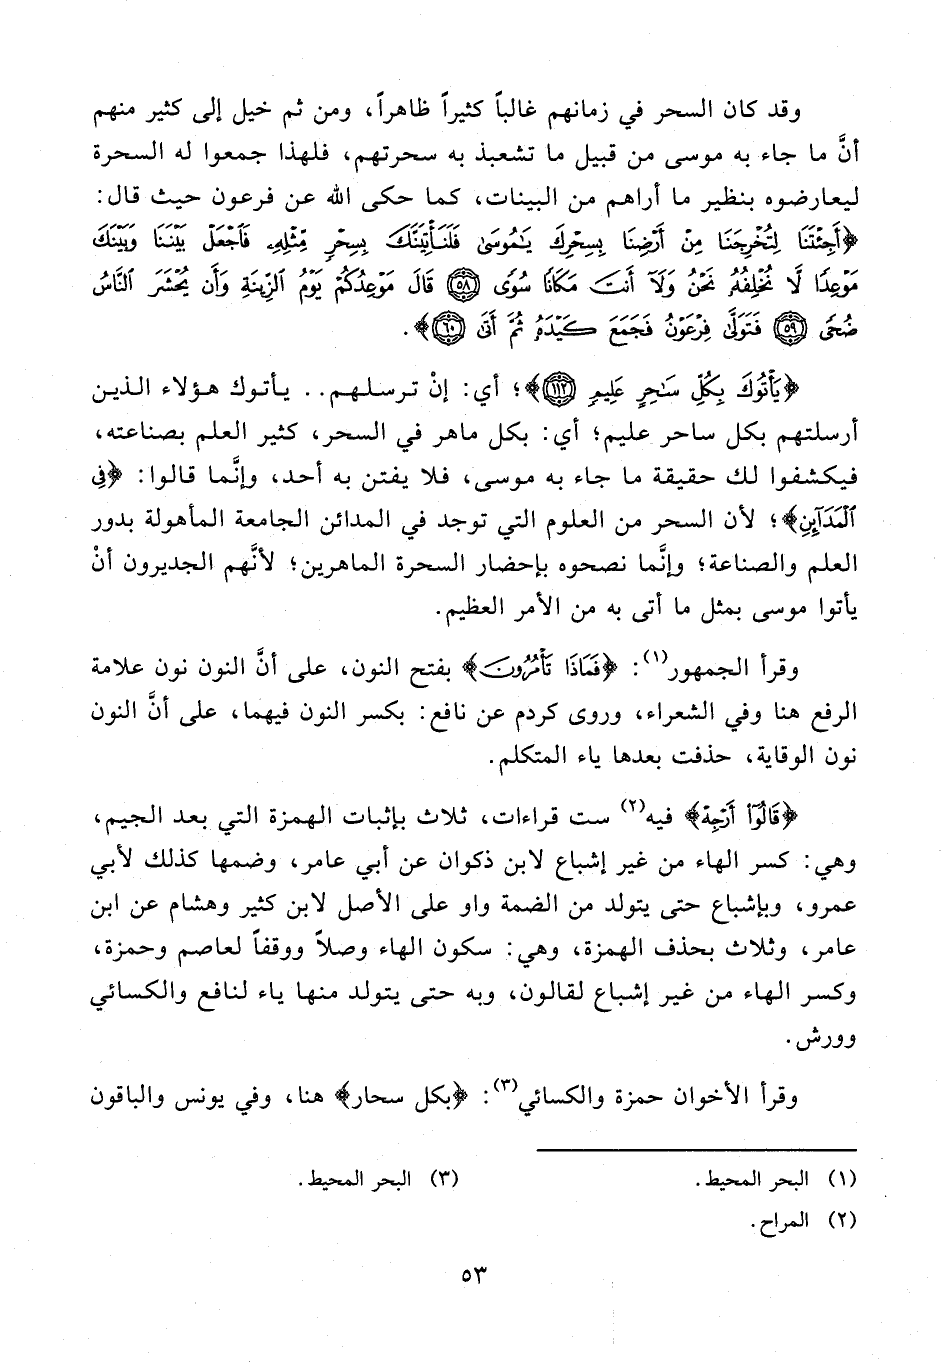 وقد كان السحر في زمانهم غالباً كثيراً ظاهراً، ومن ثم خيل إلى كثير منهم
أنَّ ما جاء به موسى من قبيل ما تشعبذ به سحرتهم، فلهذا جمعوا له السحرة
ليعارضوه بنظير ما أراهم من البينات، كما حكى الله عن فرعون حيث قال:
﴿أَجِئْتَنَا لِتُخْرِجَنَا مِنْ أَرْضِنَا بِسِحْرِكَ يَٰمُوسَىٰ فَلَنَأْتِيَنَّكَ بِسِحْرٍ مِّثْلِهِۦ فَٱجْعَلْ بَيْنَنَا وَبَيْنَكَ
مَوْعِدًا لَّا نُخْلِفُهُۥ نَحْنُ وَلَآ أَنتَ مَكَانًا سُوًى ٥٨ قَالَ مَوْعِدُكُمْ يَوْمُ ٱلزِّينَةِ وَأَن يُحْشَرَ ٱلنَّاسُ
ضُحًى ٥٩ فَتَوَلَّىٰ فِرْعَوْنُ فَجَمَعَ كَيْدَهُۥ ثُمَّ أَتَىٰ ٦٠﴾.
﴿يَأْتُوكَ بِكُلِّ سَٰحِرٍ عَلِيمٍ ١١٢﴾؛ أي: إنْ ترسلهم.. يأتوك هؤلاء الذين
أرسلتهم بكل ساحر عليم؛ أي: بكل ماهر في السحر، كثير العلم بصناعته،
فيكشفوا لك حقيقة ما جاء به موسى، فلا يفتن به أحد، وإنَّما قالوا: ﴿فِى
ٱلْمَدَآئِنِ﴾؛ لأن السحر من العلوم التي توجد في المدائن الجامعة المأهولة بدور
العلم والصناعة؛ وإنَّما نصحوه بإحضار السحرة الماهرين؛ لأنَّهم الجديرون أنْ
يأتوا موسى بمثل ما أتى به من الأمر العظيم.
وقرأ الجمهور(١): ﴿فَمَاذَا تَأْمُرُونَ﴾ بفتح النون، على أنَّ النون نون علامة
الرفع هنا وفي الشعراء، وروى كردم عن نافع: بكسر النون فيهما، على أنَّ النون
نون الوقاية، حذفت بعدها ياء المتكلم.
﴿قَالُوٓا۟ أَرْجِهْ﴾ فيه(٢) ست قراءات، ثلاث بإثبات الهمزة التي بعد الجيم،
وهي: كسر الهاء من غير إشباع لابن ذكوان عن أبي عامر، وضمها كذلك لأبي
عمرو، وبإشباع حتى يتولد من الضمة واو على الأصل لابن كثير وهشام عن ابن
عامر، وثلاث بحذف الهمزة، وهي: سكون الهاء وصلاً ووقفاً لعاصم وحمزة،
وكسر الهاء من غير إشباع لقالون، وبه حتى يتولد منها ياء لنافع والكسائي
وورش.
وقرأ الأخوان حمزة والكسائي(٣): ﴿بكل سحار﴾ هنا، وفي يونس والباقون
(١) البحر المحيط.
(٣) البحر المحيط.
(٢) المراح.
٥٣